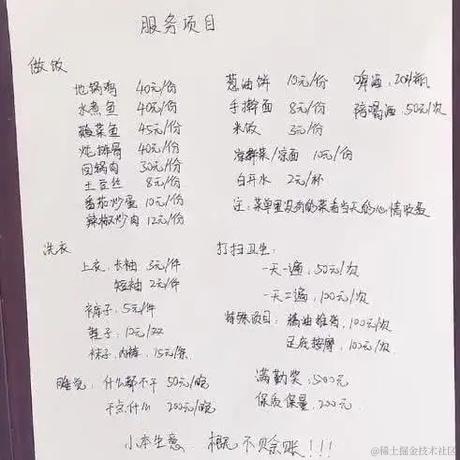 服务项目
做饭
地锅鸡 40元/份
水煮鱼 40元/份
酸菜鱼 45元/份
炖排骨 40元/份
回锅肉 30元/份
土豆丝 8元/份
番茄炒蛋 10元/份
辣椒炒肉 12元/份
葱油饼 10元/份
手擀面 8元/份
米饭 3元/份
凉拌菜/凉面 10元/份
白开水 2元/杯
啤酒, 20/瓶
陪喝酒, 50元/次
注: 菜单里没有的菜看当天的心情收费
洗衣
上衣: 长袖 3元/件
短袖 2元/件
裤子: 5元/件
鞋子: 10元/双
袜子、内裤: 15元/条
打扫卫生:
一天一遍, 50元/次
一天二遍, 100元/次
特殊项目: 精油推背, 100元/次
足底按摩, 100元/次
睡觉: 什么都不干 50元/晚
干点什么 200元/晚
满勤奖, 500元
保质保量, 200元
小本生意 概不赊账!!!
@稀土掘金技术社区